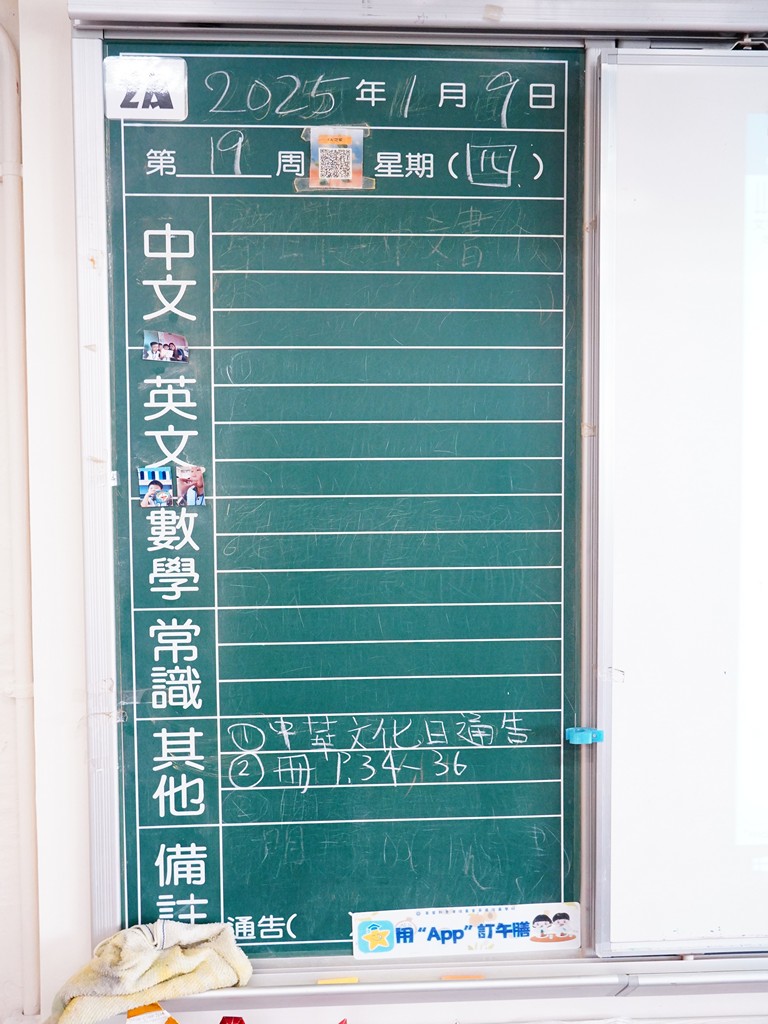 2A
2025年1月9日
第19周 星期(四)
中文
英文
數學
常識
其他
①中華文化日通告
②冊 P.34~36
備註
通告( )
用“App”訂午膳